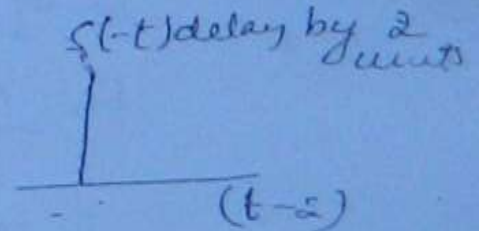 δ(-t) delay by 2
units
(t-2)